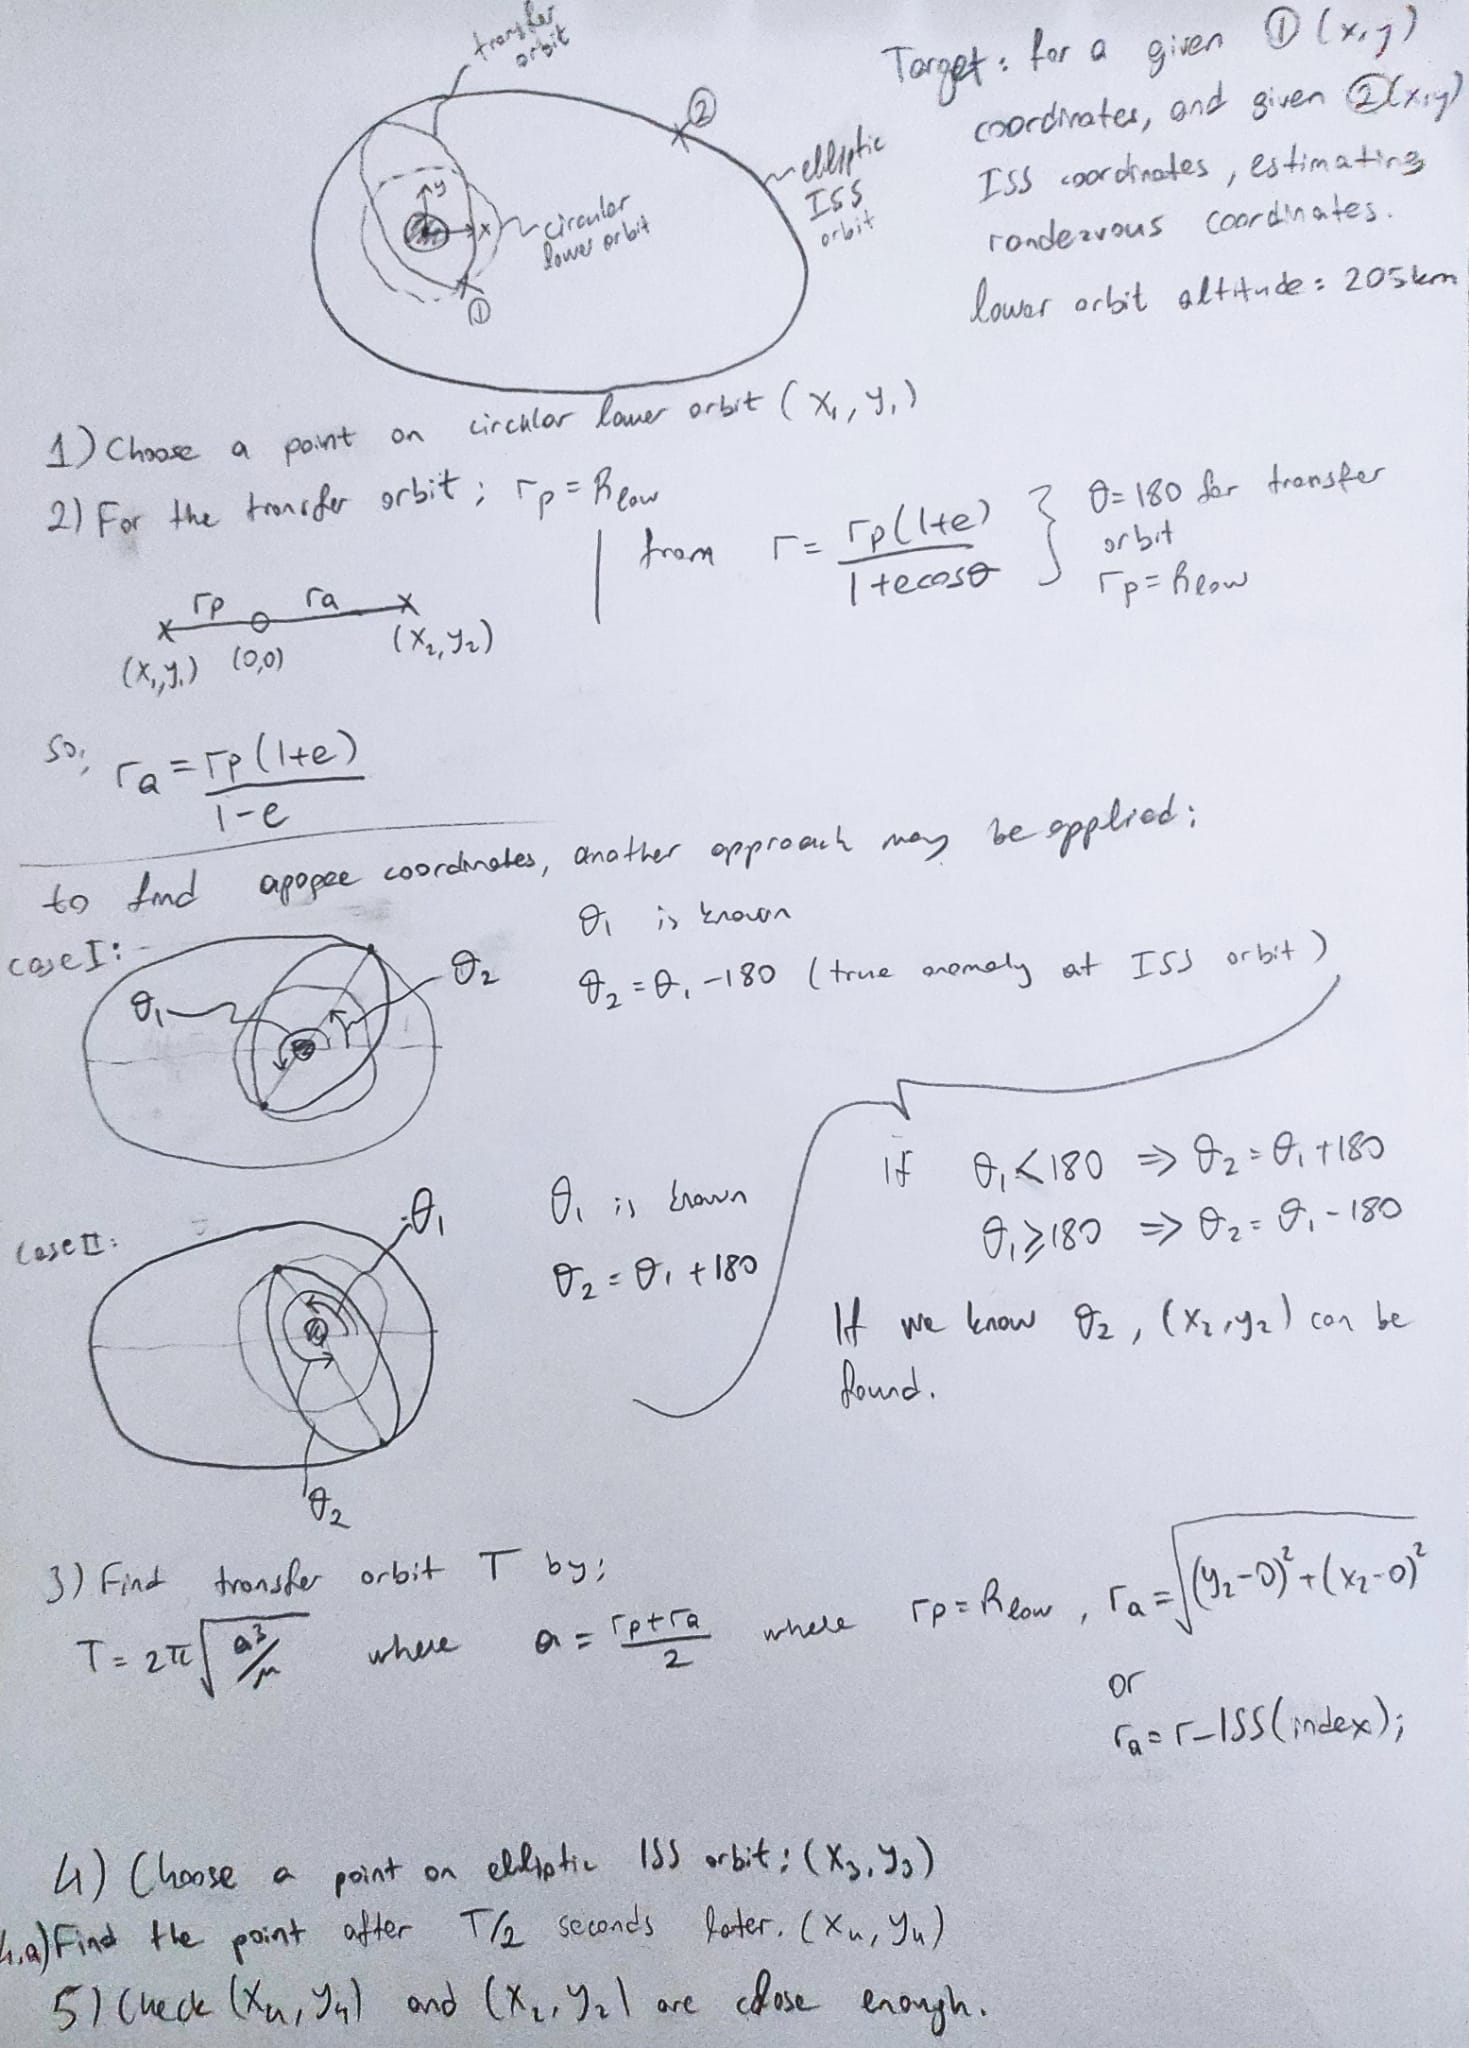 transfer
orbit
Target: for a given ① (x,y)
coordinates, and given ②(x,y)
ISS coordinates, estimating
randezvous coordinates.
lower orbit altitude: 205km
②
elliptic
ISS
orbit
y
x
circular
lower orbit
①
1) Choose a point on circular lower orbit (x₁, y₁)
2) For the transfer orbit; rp = Rlow
from r = rp(1+e) / 1+ecosθ } θ=180 for transfer
orbit
rp = Rlow
rp ra
(x₁,y₁) (0,0) (x₂,y₂)
so, ra = rp(1+e) / 1-e
to find apogee coordinates, another approach may be applied;
case I:
θ₁
θ₂
θ₁ is known
θ₂ = θ₁ -180 (true anomaly at ISS orbit)
case II:
θ₁
θ₂
θ₁ is known
θ₂ = θ₁ +180
if θ₁<180 ⇒ θ₂ = θ₁+180
θ₁≥180 ⇒ θ₂ = θ₁-180
If we know θ₂, (x₂,y₂) can be
found.
3) Find transfer orbit T by;
T = 2π√(a³/μ) where a = rp+ra / 2 where rp = Rlow, ra = √((y₂-0)²+(x₂-0)²)
or
ra = r_ISS(index);
4) Choose a point on elliptic ISS orbit: (x₃, y₃)
4.a) Find the point after T/2 seconds later. (x₄, y₄)
5) Check (x₄, y₄) and (x₂, y₂) are close enough.